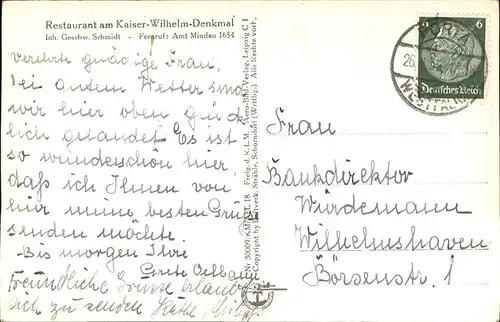 Restaurant am Kaiser-Wilhelm-Denkmal
Inh. Geschw. Schmidt - Fernruf: Amt Minden 1654
Verehrte gnädige Frau,
bei gutem Wetter sind
wir hier oben glück
lich gelandet. Es ist
so wunderschön hier,
daß ich Ihnen von
hier meine besten Grüße
senden möchte.
Bis morgen Ihre
Grete
Freundliche Grüsse erlaubt
sich zu senden Käthe
Freig. d. R.L.M. Aero-Bild-Verlag, Leipzig C 1
Copyright by Luftverk. Strähle, Schorndorf (Wttbg.) Alle Rechte vorb.
6 6
Deutsches Reich
26.
Frau
Bankdirektor
Würdemann
Wilhelmshaven
Börsenstr. 1